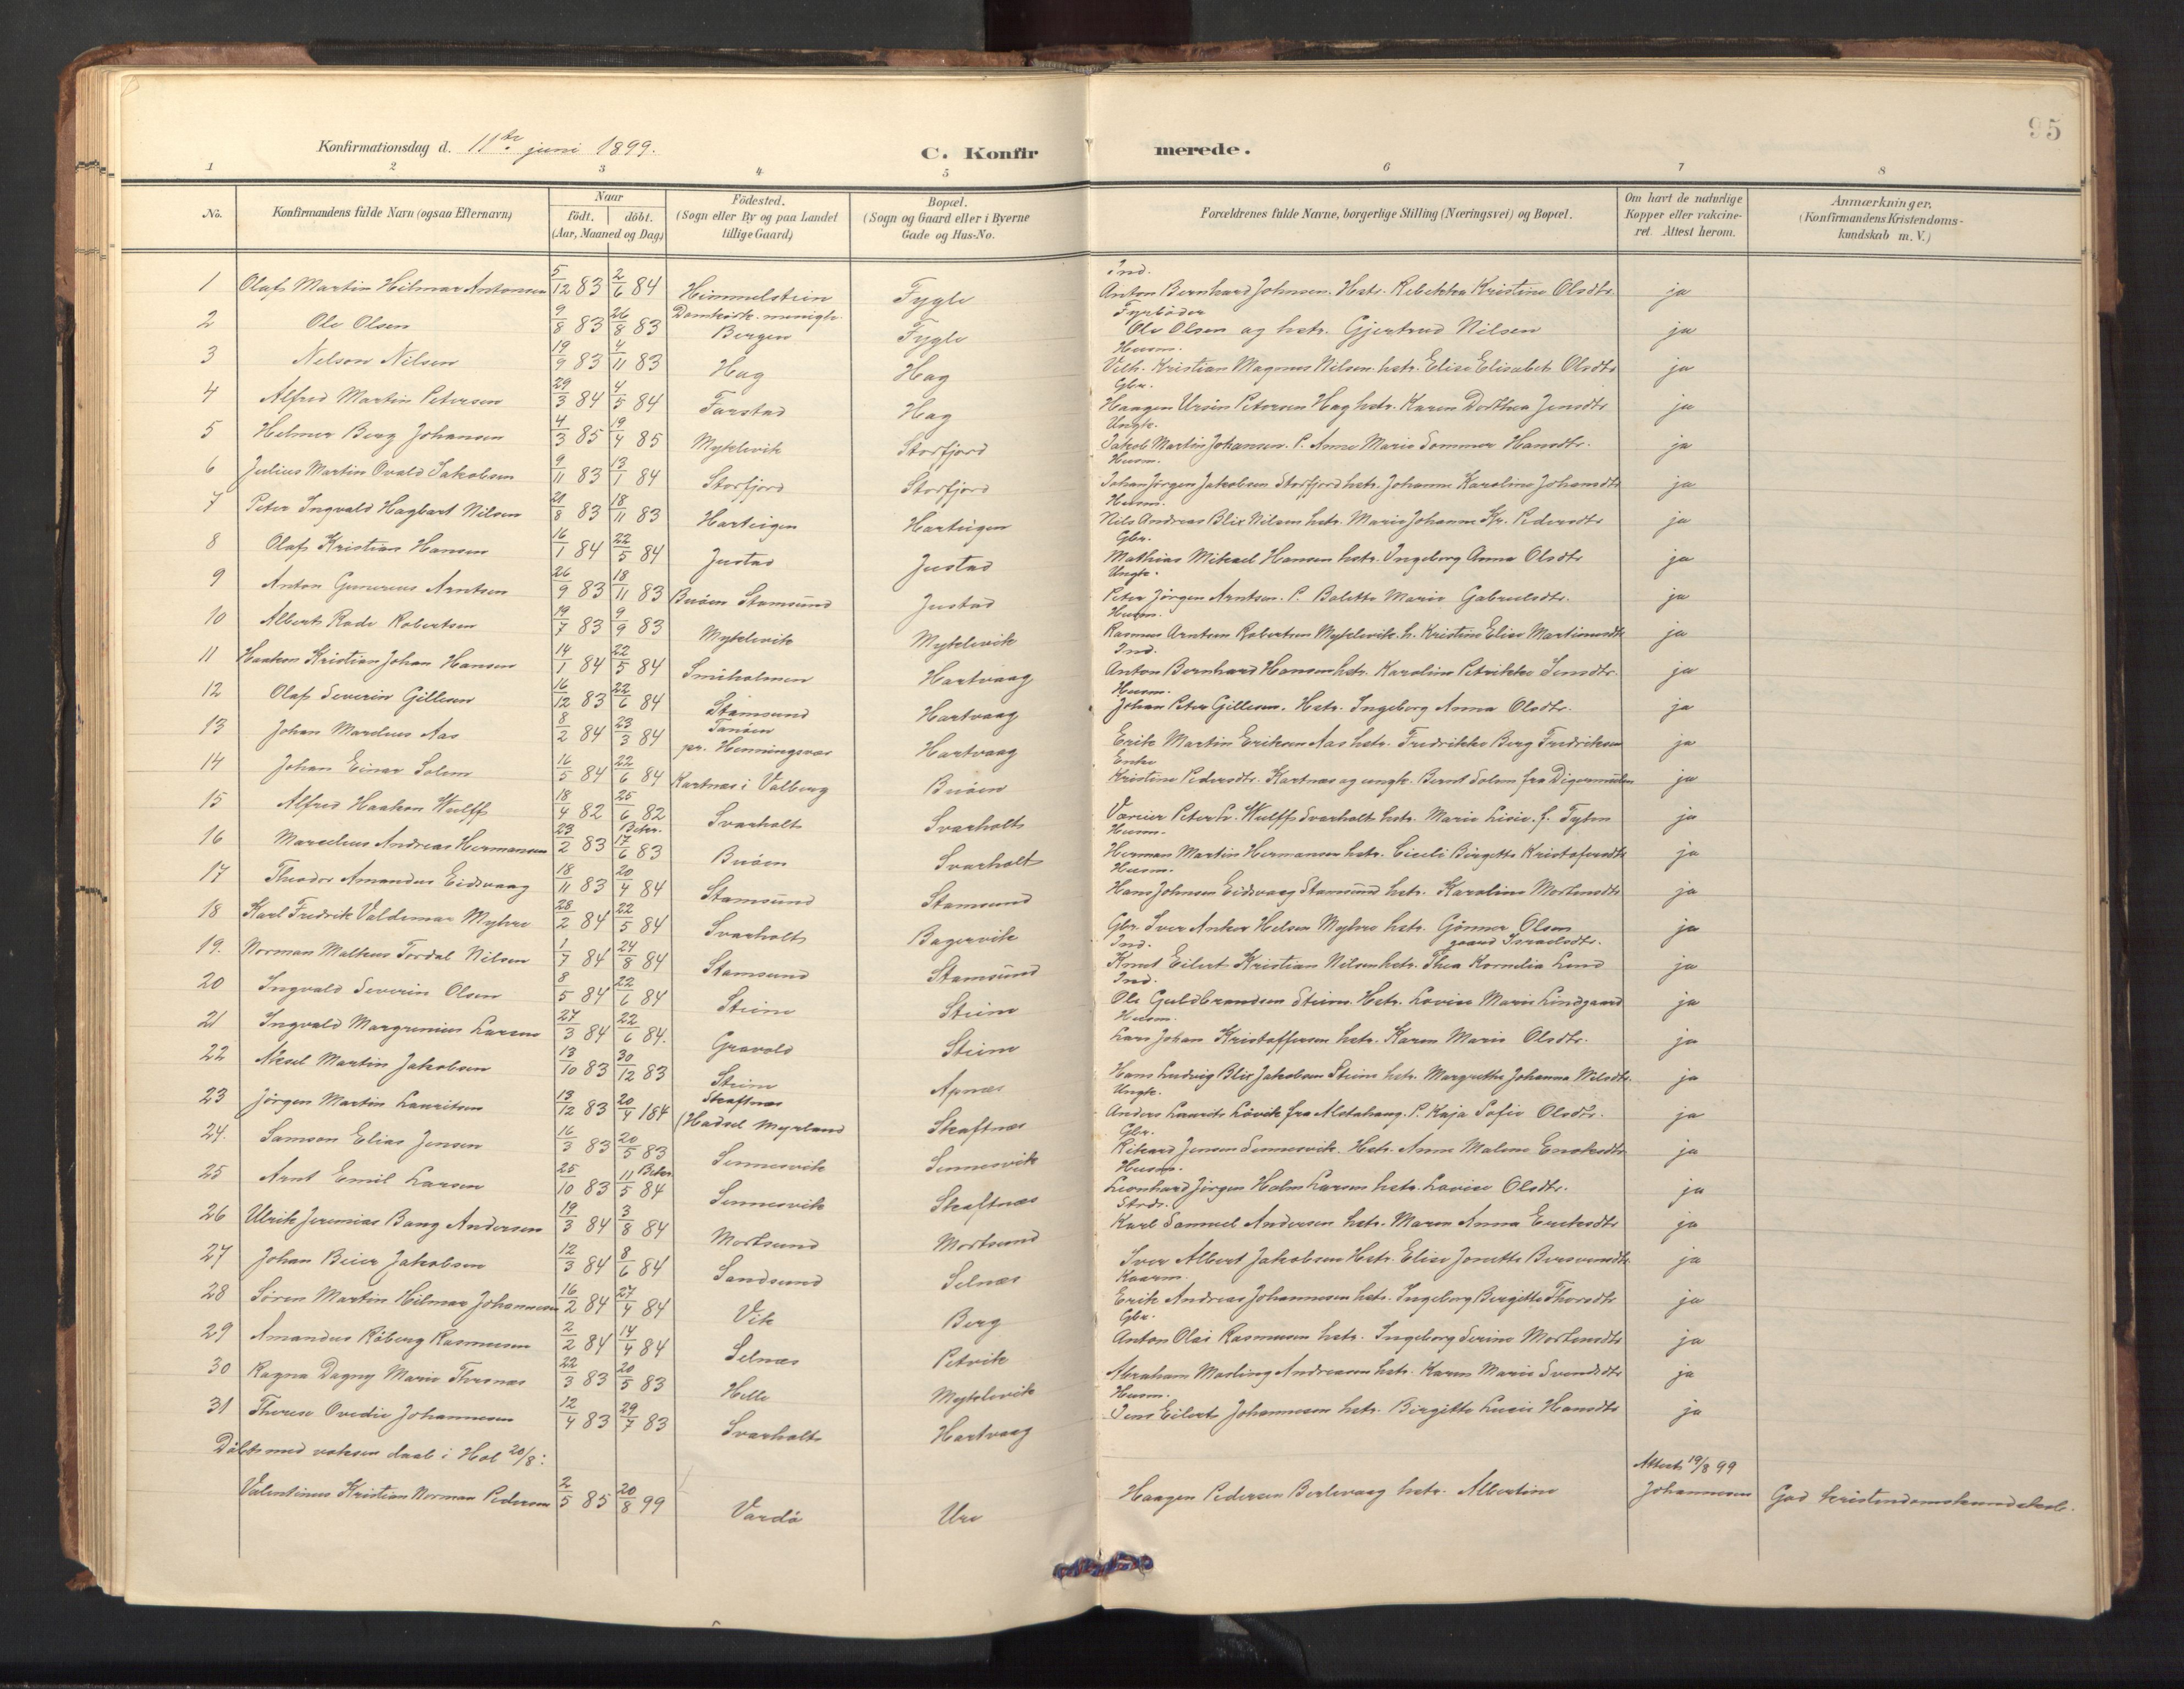 95
Konfirmationsdag d. 11te juni 1899.
C. Konfirmerede.
1 2 3 4 5 6 7 8
No. Konfirmandens fulde Navn (ogsaa Efternavn) Naar födt. döbt. (Aar, Maaned og Dag) Födested. (Sogn eller By og paa Landet tillige Gaard) Bopæl. (Sogn og Gaard eller i Byerne Gade og Hus-No. Forældrenes fulde Navne, borgerlige Stilling (Næringsvei) og Bopæl. Om havt de naturlige Kopper eller vakcineret. Attest herom. Anmærkninger. (Konfirmandens Kristendomskundskab m. V.)
1 Olaf Martin Hilmar Antonsen 5/12 83 2/6 84 Himmelstein Fygle Ind. Anton Bernhard Johnsen. Hstr. Rebekka Kristine Olsdtr. ja
2 Ole Olsen 9/8 83 26/8 83 Domkirk. menigh. Bergen Fygle Fyrböder Ole Olsen og hstr. Gjertrud Nilsen ja
3 Nelson Nilsen 19/9 83 4/11 83 Hag Hag Husm. Vilh. Kristian Magnus Nilsen. hstr. Elise Elisabet Olsdtr ja
4 Alfred Martin Petersen 29/3 84 4/5 84 Farstad Hag Gbr. Haagen Ursin Petersen Hag hstr. Karen Dorthea Jensdtr ja
5 Helmer Berg Johansen 4/3 85 19/4 85 Myklevik Storfjord Ungk. Jakob Martin Johansen. P. Anne Marie Sommer Hansdtr. ja
6 Julius Martin Ovald Jakobsen 9/11 83 13/1 84 Storfjord Storfjord Husm. Johan Jörgen Jakobsen Storfjord hstr. Johanna Karoline Johansdtr ja
7 Peter Ingvald Hagbart Nilsen 21/8 83 18/11 83 Harteigen Harteigen Husm. Nils Andreas Blix Nilsen hstr. Marie Johanna Kr. Pedersdtr ja
8 Olaf Kristian Hansen 16/1 84 22/5 84 Justad Justad Gbr. Mathias Mikael Hansen hstr. Ingeborg Anna Olsdtr ja
9 Anton Gunerius Arntsen 26/9 83 18/11 83 Buöen Stamsund Justad Ungk. Peter Jörgen Arntsen. P. Bolette Marie Gabrielsdtr. ja
10 Albert Rode Robertsen 19/7 83 9/9 83 Myklevik Myklevik Husm. Rasmus Arntsen Robertsen Myklevik. h. Kristine Elise Martinusdtr ja
11 Haakon Kristian Johan Hansen 14/1 84 22/5 84 Smiholmen Hartvaag Ind. Anton Bernhard Hansen hstr. Karoline Petrikke Jensdtr. ja
12 Olaf Severin Gillesen 16/12 83 22/6 84 Stamsund Hartvaag Husm. Johan Peter Gillesen. Hstr. Ingeborg Anna Olsdtr. ja
13 Johan Marelius Aas 8/2 84 23/3 84 Tanöen pr. Henningsvær Hartvaag Erik Martin Eriksen Aas hstr. Fredrikke Berg Fredriksen ja
14 Johan Einar Solem 16/5 84 22/6 84 Kartnæs i Valberg Buöen Enke Kristine Pedersdtr. Kartnæs og ungk. Bernt Solem fra Digermulen ja
15 Alfred Haakon Wulff 18/4 82 25/6 82 Svarholt Svarholt Væveier Peter Wulff Svarholt hstr. Marie Lisie. f. Tylen ja
16 Marcelius Andreas Hermansen 23/2 83 Bekr. 17/6 83 Buöen Svarholt Husm. Herman Martin Hermansen hstr. Cicili Birgitte Kristofersdtr ja
17 Theodor Amandus Eidsvaag 18/11 83 20/4 84 Stamsund Stamsund Husm. Hans Johnsen Eidsvaag Stamsund hstr. Karoline Mortensdtr ja
18 Karl Fredrik Valdemar Myhre 28/2 84 22/5 84 Svarholt Bagervik Gbr. Iver Anker Helsen Myhre hstr. Gönner Olsen gaard Israelsdtr. ja
19. Norman Malkus Tordal Nilsen 1/7 84 24/8 84 Stamsund Stamsund Ind. Knut Eilert Kristian Nilsen hstr. Thea Kornelia Lund ja
20 Ingvald Severin Olsen 8/5 84 22/6 84 Steine Steine Ind. Ole Guldbrandsen Steine. Hstr. Lovise Marie Lindgaard ja
21 Ingvald Margrenius Larsen 27/3 84 22/6 84. Gravold Steine Husm. Lars Johan Kristoffersen hstr. Karen Marie Olsdtr. ja
22 Aksel Martin Jakobsen 13/10 83 30/12 83 Steine Apnæs Hans Ludvig Blix Jakobsen Steine hstr. Margrethe Johanna Nilsdtr. ja
23 Jörgen Martin Lauritsen 13/12 83 20/4 184 Skaftnæs (Hadsel Myrland Skaftnæs Ungk. Anders Laurits Lövik fra Alstahaug. P. Kaja Sofie Olsdtr. ja
24. Samson Elias Jensen 16/3 83 20/5 83 Sennesvik Sennesvik Gbr. Rikard Jensen Sennesvik. Hstr. Anne Malene Enoksdtr ja
25 Arnt Emil Larsen 25/10 83 11/5 Bekr. 84 Sennesvik Skaftnæs Husm. Leonhard Jörgen Holm Larsen hstr. Lovise Olsdtr. ja
26 Ulrik Jeremias Bang Andersen 19/3 84 3/8 84 Mortsund Mortsund Strdr. Karl Samuel Andersen hstr. Maren Anna Eriksdtr ja
27 Johan Beier Jakobsen 12/3 84 8/6 84 Sandsund Selnæs Iver Albert Jakobsen Hstr. Elise Jonette Bersvendtr. ja
28 Sören Martin Hilmar Johannesen 16/2 84 27/4 84 Vik Berg Kaarm. Erik Andreas Johannesen hstr. Ingeborg Bergitte Thorsdtr ja
29 Amandus Röberg Rasmussen 2/2 84 14/4 84 Selnæs Petvik Gbr. Anton Olai Rasmussen hstr. Ingeborg Serine Mortensdtr ja
30 Ragna Dagny Marie Thesnæs 22/3 83 20/5 83 Helle Myklevik Abraham Masling Andreasen hstr. Karen Marie Svendsdtr ja
31 Therese Ovedie Johannesen 12/4 83 29/7 83 Svarholt Hartvaag Husm. Jens Eilert Johannesen hstr. Birgitte Lucie Hansdtr ja
Döbt med voksen daab i Hol 20/8: Attest 19/8 99
Valentinus Kristian Norman Pedersen 2/5 85 20/8 99 Vardö Ure Haagen Pedersen Berlevaag hstr. Albertine Johannesen God kristendomskundskab.